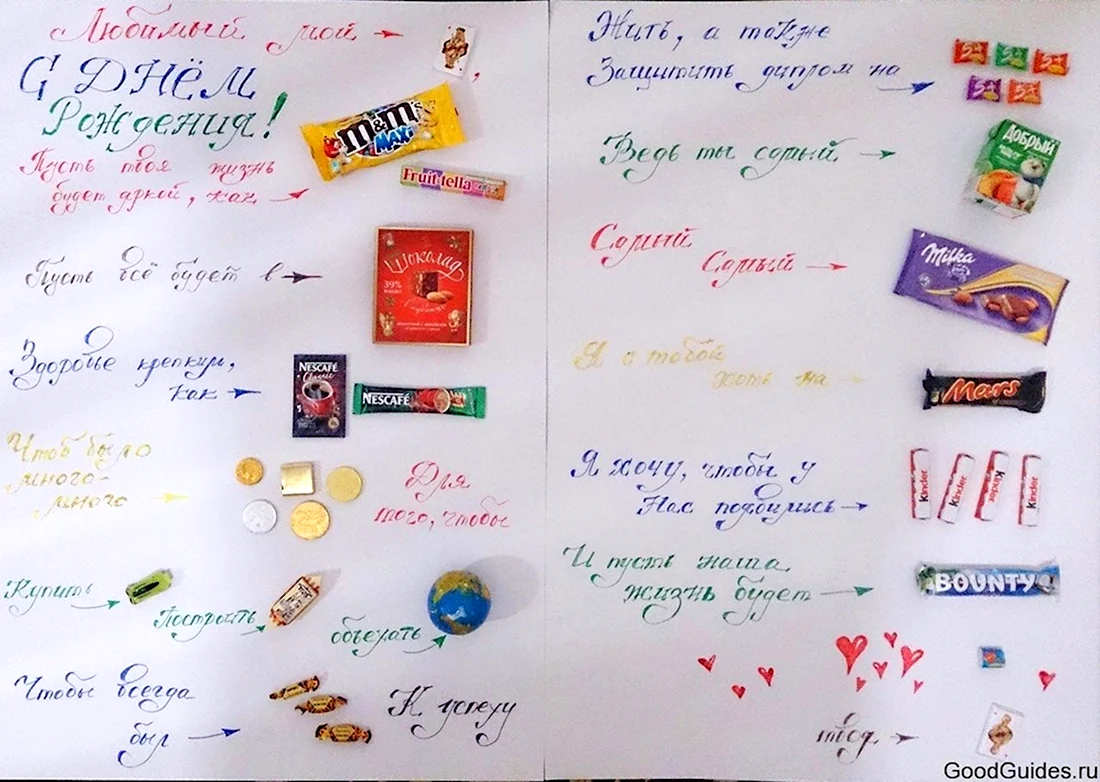 Любимый мой
С ДНЁМ
Рождения!
m&m's
MAXI
Пусть твоя жизнь
будет яркой, как
Fruit-tella
Пусть всё будет в
Шоколад
39%
Здоровье крепким,
как
NESCAFÉ
Classic
NESCAFÉ
Чтоб было
много-
много
Для
того, чтобы
Купить
Построить
объехать
Чтобы всегда
был
К успеху
Жить, а также
Защитить диплом на
5+
5+
5+
5+
5+
Ведь ты самый
ДОБРЫЙ
Самый
Самый
Milka
Я с тобой
хоть на
Mars
Я хочу, чтобы у
Нас появились
Kinder
Kinder
Kinder
Kinder
И пусть наша
жизнь будет
BOUNTY
твоя
GoodGuides.ru